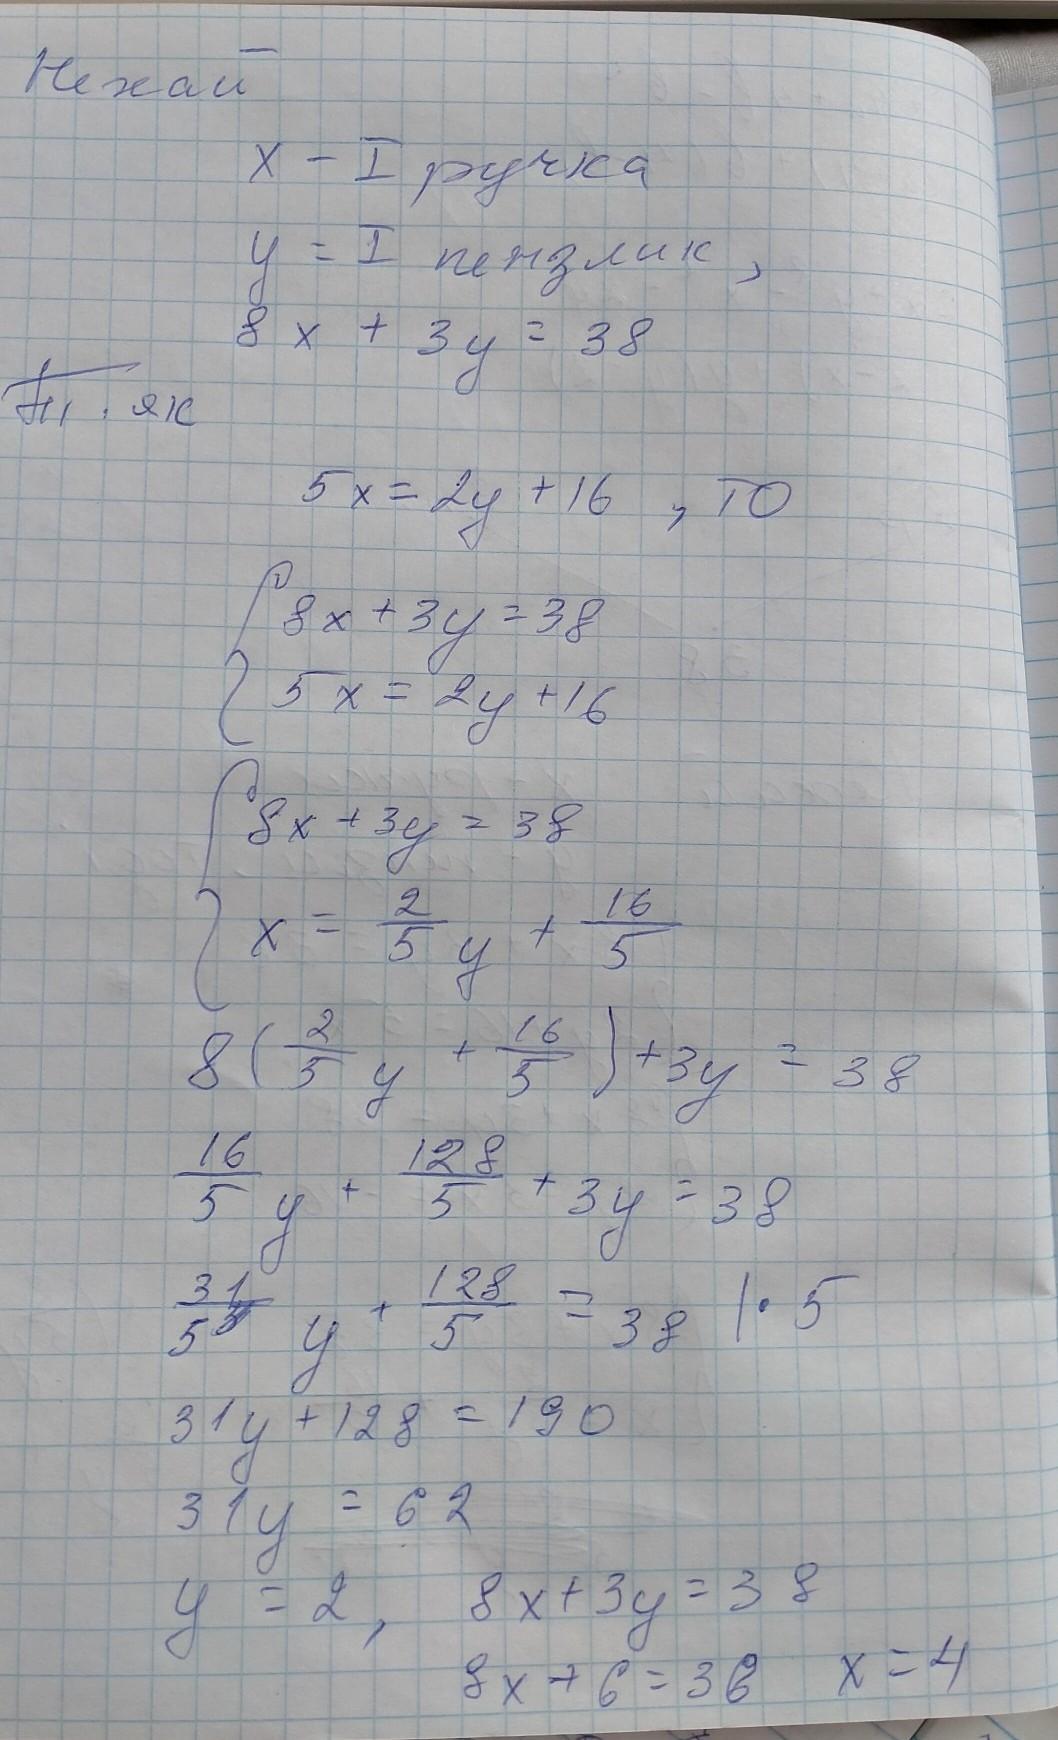 Нехай
x - I ручка
y = I пензлик,
8x + 3y = 38
Т. як
5x = 2y + 16 , то
{ 8x + 3y = 38
5x = 2y + 16
{ 8x + 3y = 38
x = 2/5 y + 16/5
8(2/5 y + 16/5) + 3y = 38
16/5 y + 128/5 + 3y = 38
31/5 y + 128/5 = 38 |· 5
31y + 128 = 190
31y = 62
y = 2, 8x + 3y = 38
8x + 6 = 38 x = 4